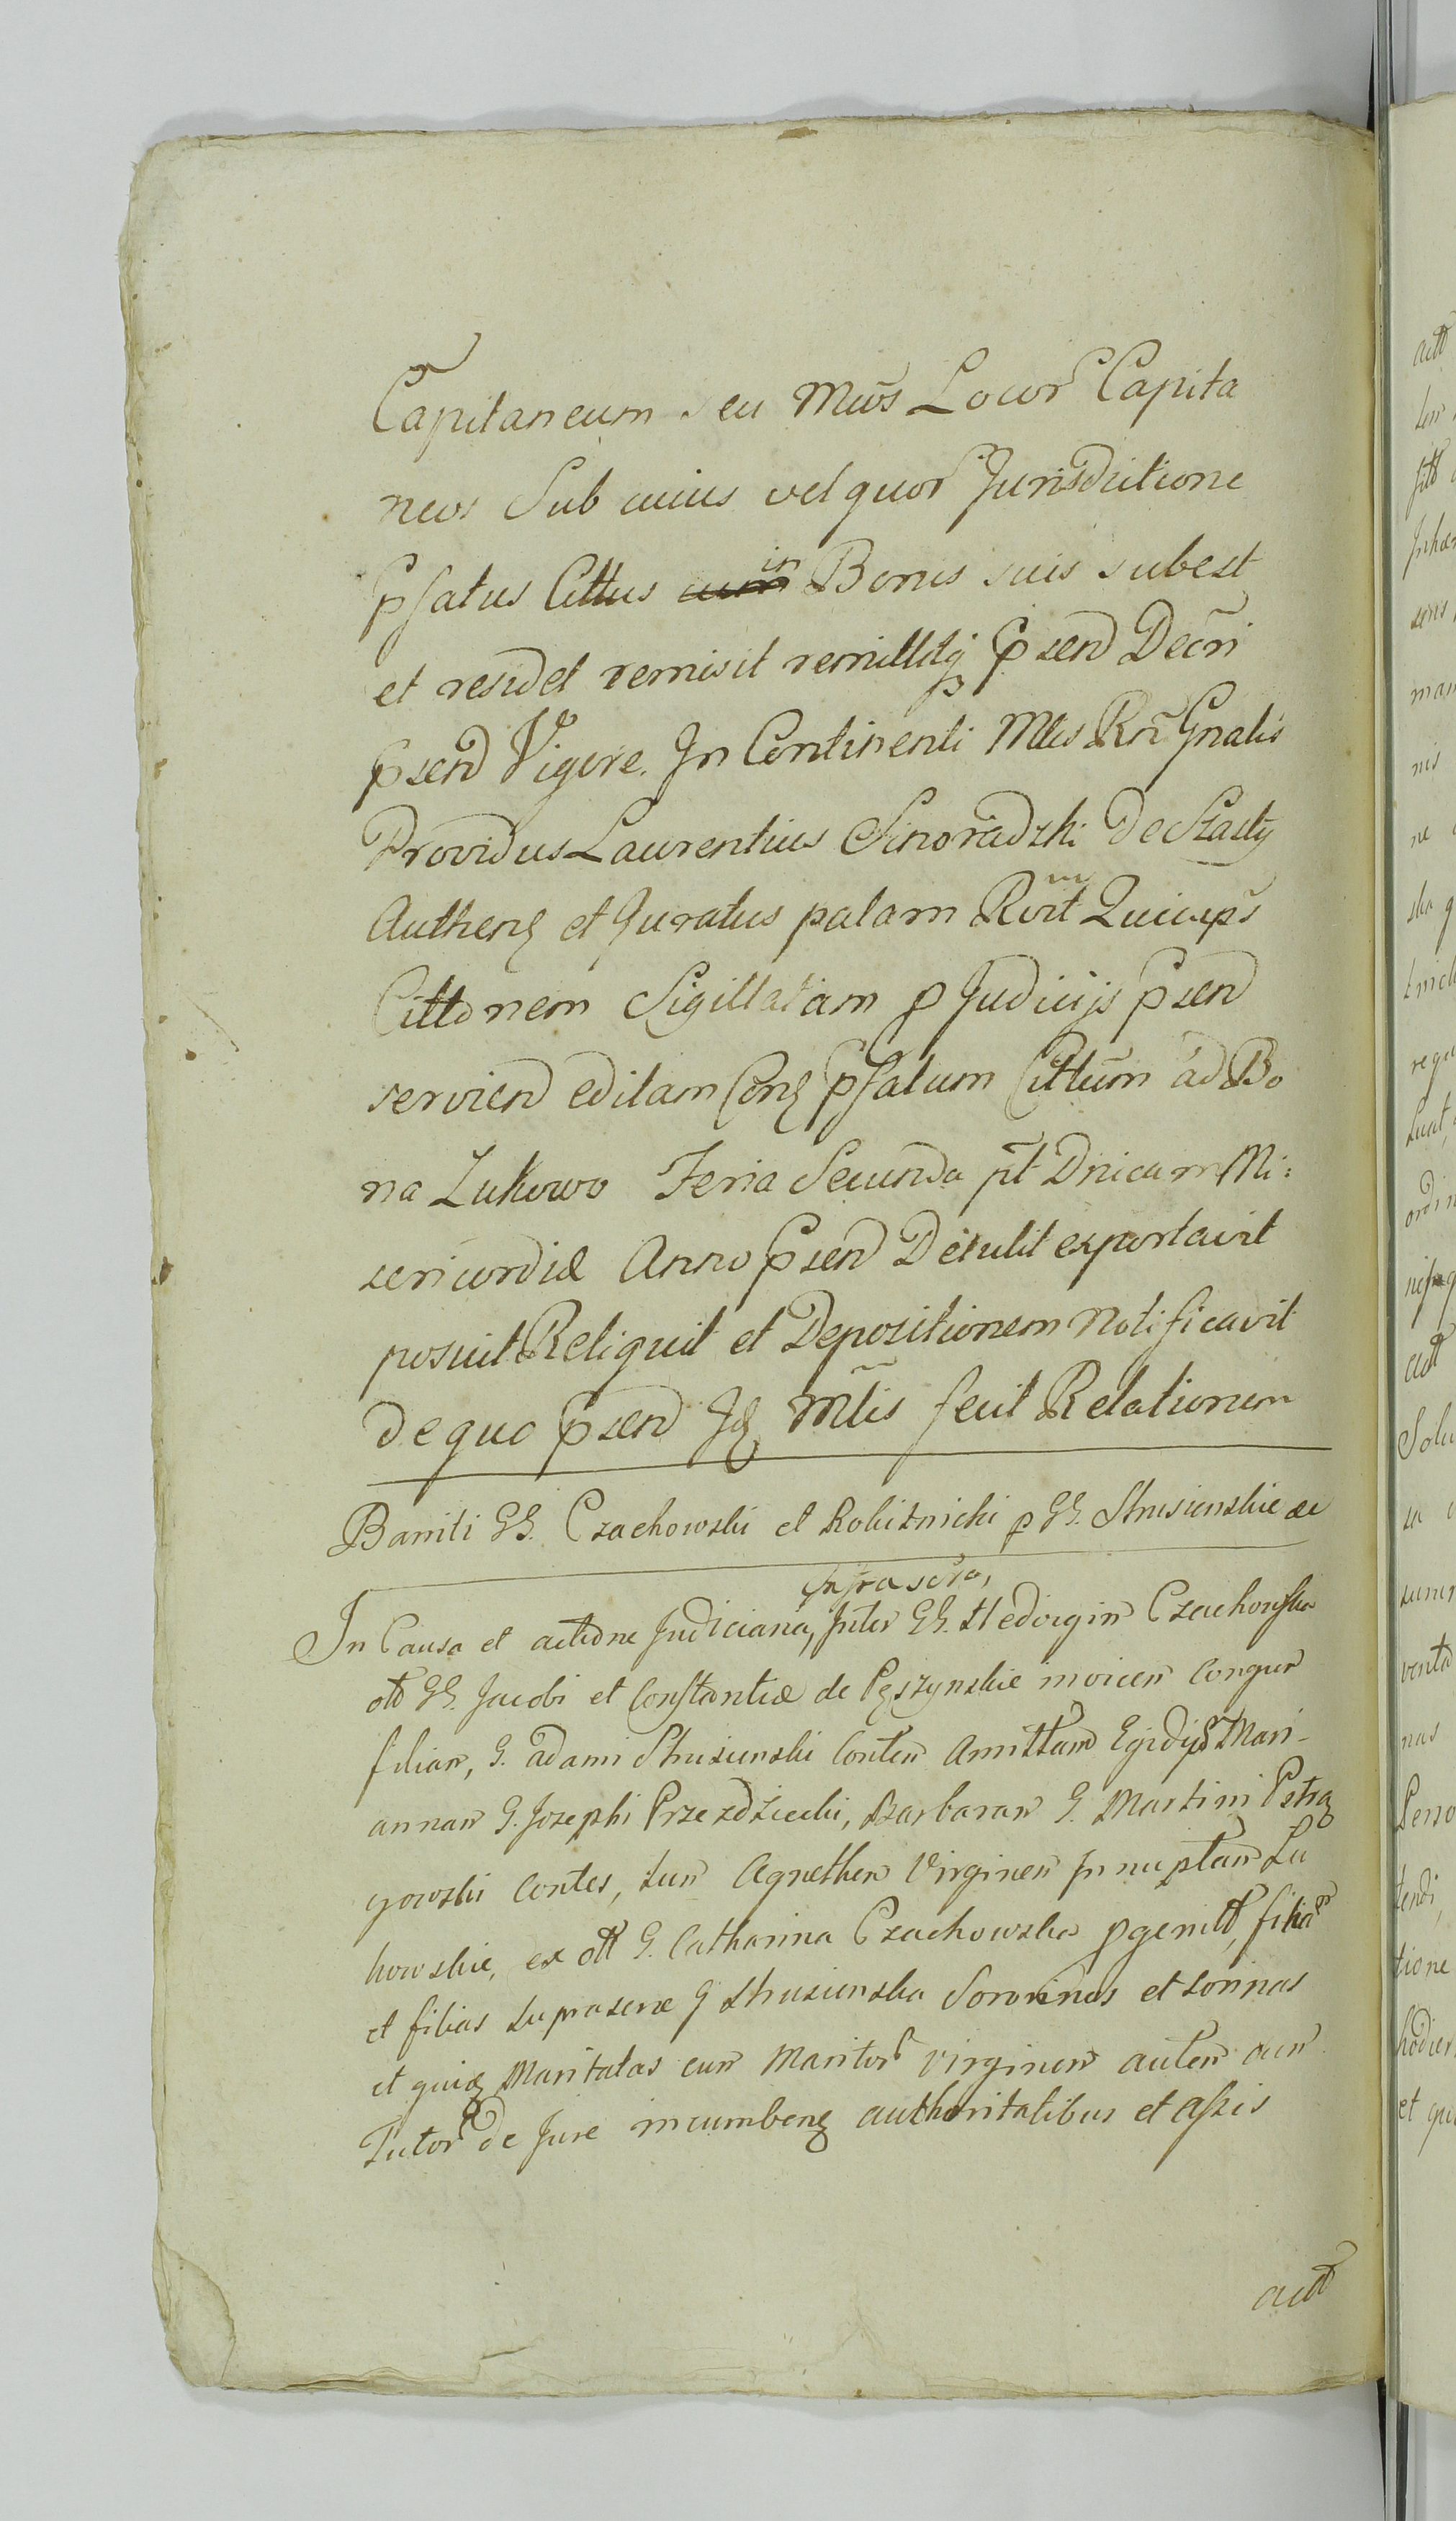 Capitaneum seu Mws Locor Capita
neos Sub cuius vel quor Jurisdictione
pfatus Cittus in Bonis suis subest
et residet remisit remittitq psend Decri
psend Vigore. In Continenti Mtis Rni Gnalis
Providus Laurentius Sinoradzki De Szasty
Authenq et Juratus palam Rvit Quia ips
Cittonem Sigillatam p Judicijs psend
serviend editam Conq pfatum Cittum ad Bo
na Zukowo Feria Secunda pt Dnicam Mi:
sericordiæ Anno psend Detulit exportavit
posuit Reliquit et Depositionem Notificavit
de quo psend Jq Mtis fecit Relationem
Banniti GG. Czachowski et Kobiznicki p GG. Strusienskie ac
Infrascra,
In Causa et actione Judiciaria, Inter GG. Hedvigim Czachowska
ott GG. Jacobi et Constantiæ de Pęszynskie invicem Congum
filiam, G. Adami Strusienski Contem Amittam Egidij et Mari-
annam G. Josephi Przezdziecki, Barbaram G. Martini Petry
gowski Contes, tum Agnethem Virginem Innuptam Lu
kowskie, ex ott G. Catharina Czachowska pgenitt, filiam
et filias suprascræ G Strusienska Sororinos et sorinas
et quidq Maritatas cum Maritor virginem autem cum
Tutor de Jure incumbenq authoritatibus et assis
actt